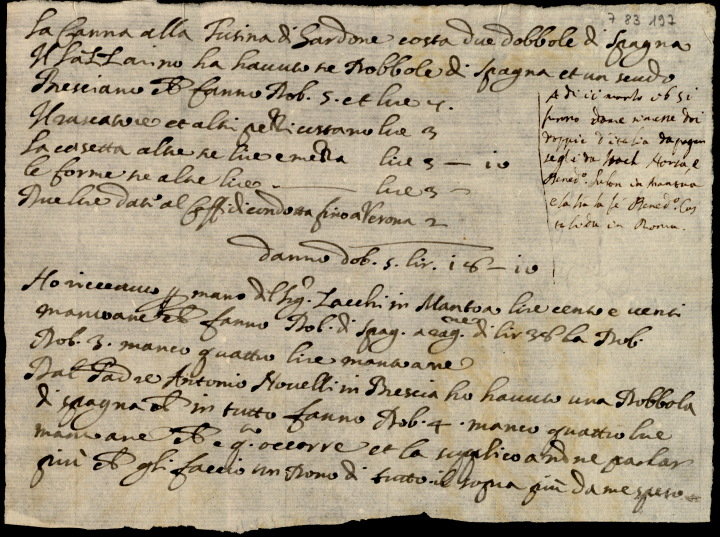 7 83 197
La Canna alla Fusina di Gardone costa due dobbole di spagna
Il ha havuto tre Dobbole di spagna et un scudo
Bresciano che fanno Dob. 5. et lire 4.
et altri pezzi custano lire 3
La casetta altre tre lire e mezza lire 3 — 10
le forme tre altre lire. — lire 3 —
Due lire dati al di condotta fino a Verona 2
danno dob. 5. lir. 18 — 10
A di 11 marzo 1651
furono dove
doppie d'italia da pagar
segli da Noris, e
Bened.o in mantoa
e la fa il Sé Bened.o
in Roma.
Ho riceuuto p mano del Sig.r Zacchi in Mantoa lire cento e venti
mantoane che fanno Dob. di spag. a rag.ne di lir 38 la Dob.
Dob. 3. manco quattro lire mantoane
Dal Padre Antonio Novelli in Brescia ho havuto una Dobbola
di spagna che in tutto fanno Dob. 4. manco quattro lire
mantoane che è q.to occorre et la supplico a non ne parlar
più che gli faccio un Dono di tutto il sopra più da me speso